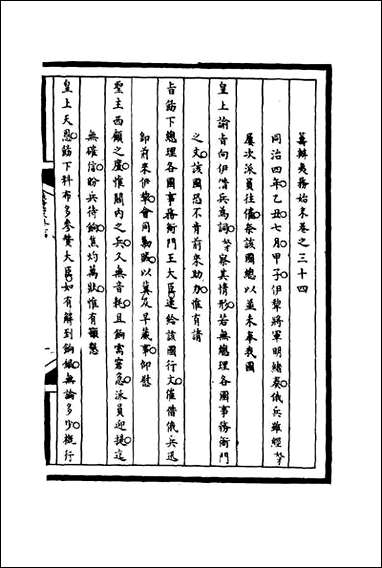 籌辦夷務始末卷之三十四
同治四年乙丑七月甲子伊犂將軍明緒奏俄兵雖經
屢次派員往催奈該國總以並未奉我國
皇上諭旨向伊借兵為詞察其情形若無總理各國事務衙門
之文該國恐不肯前來助力惟有請
旨飭下總理各國事務衙門王大臣速給該國行文催借俄兵迅
即前來伊犂會同勦賊以冀及早蕆事仰慰
聖主西顧之慮惟關內之兵久無音耗且餉需窘急派員迎提迄
無確信盼兵待餉焦灼萬狀惟有籲懇
皇上天恩飭下科布多參贊大臣如有解到餉銀無論多少挺行